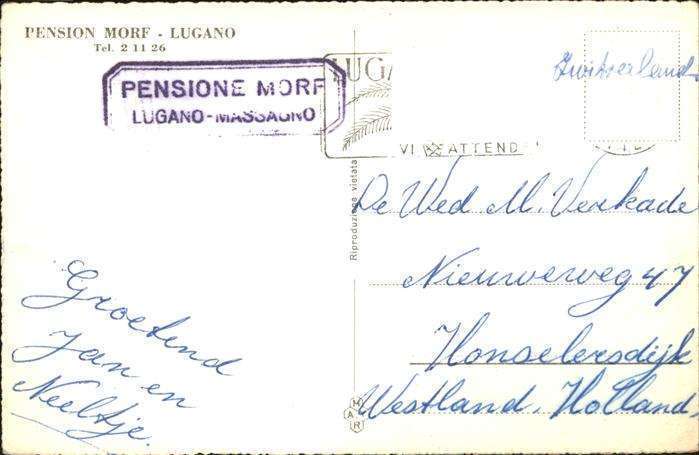 PENSION MORF - LUGANO
Tel. 2 11 26
PENSIONE MORF
LUGANO-MASSAGNO
LUGA
VI ATTEND
Zwitserland
Riproduzione vietata
De Wed M. Verkade
Nieuweweg 47
Honselersdijk
Westland. Holland.
Groetend
Jan en
Neeltje.
MAR